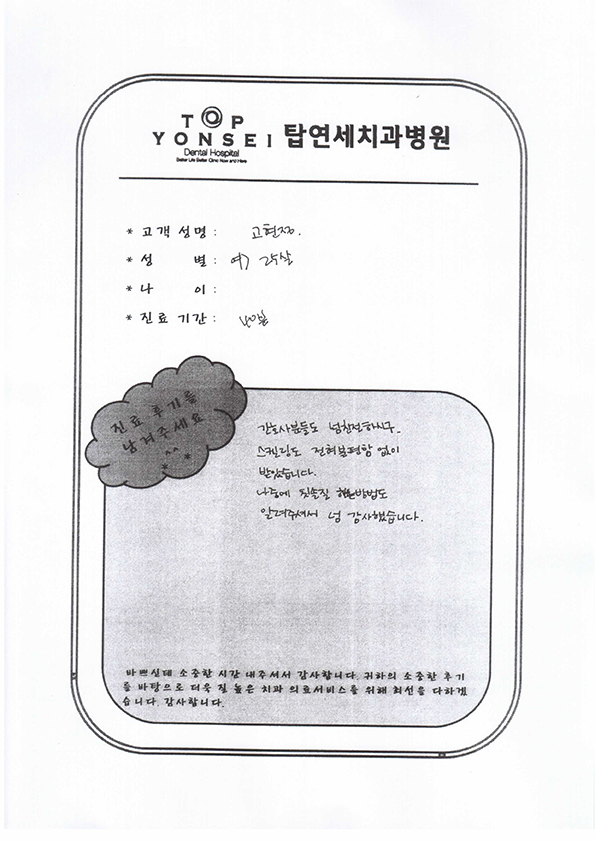 TOP
YONSEI 탑연세치과병원
Dental Hospital
Better Life Better Clinic Now and Here
* 고객 성명 : 고현정.
* 성 별 : 여 25살
* 나 이 :
* 진료 기간 :
진료 후기를
남겨주세요
^^
* *
간호사분들도 넘친절하시구.
스케일링도 전혀불편함 없이
받았습니다.
나중에 칫솔질 하는방법도
알려주셔서 넘 감사했습니다.
바쁘신데 소중한 시간 내주셔서 감사합니다. 귀하의 소중한 후기
를 바탕으로 더욱 질 높은 치과 의료서비스를 위해 최선을 다하겠
습니다. 감사합니다.